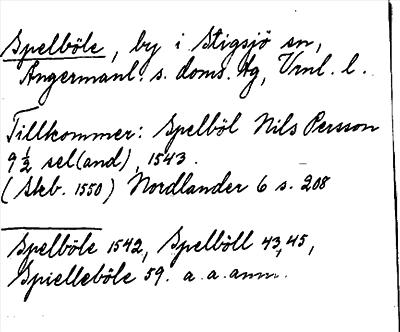 Spelböle, by i Stigsjö sn,
Ångermanl. s. doms. tg, Vrnl. l.
Tillkommer: Spelböl Nils Persson
9 1/2 sel(and), 1543.
(Skb. 1550) Nordlander 6 s. 208
Spelböle 1542, Spelböll 43, 45,
Spielleböle 59. a. a. anm.